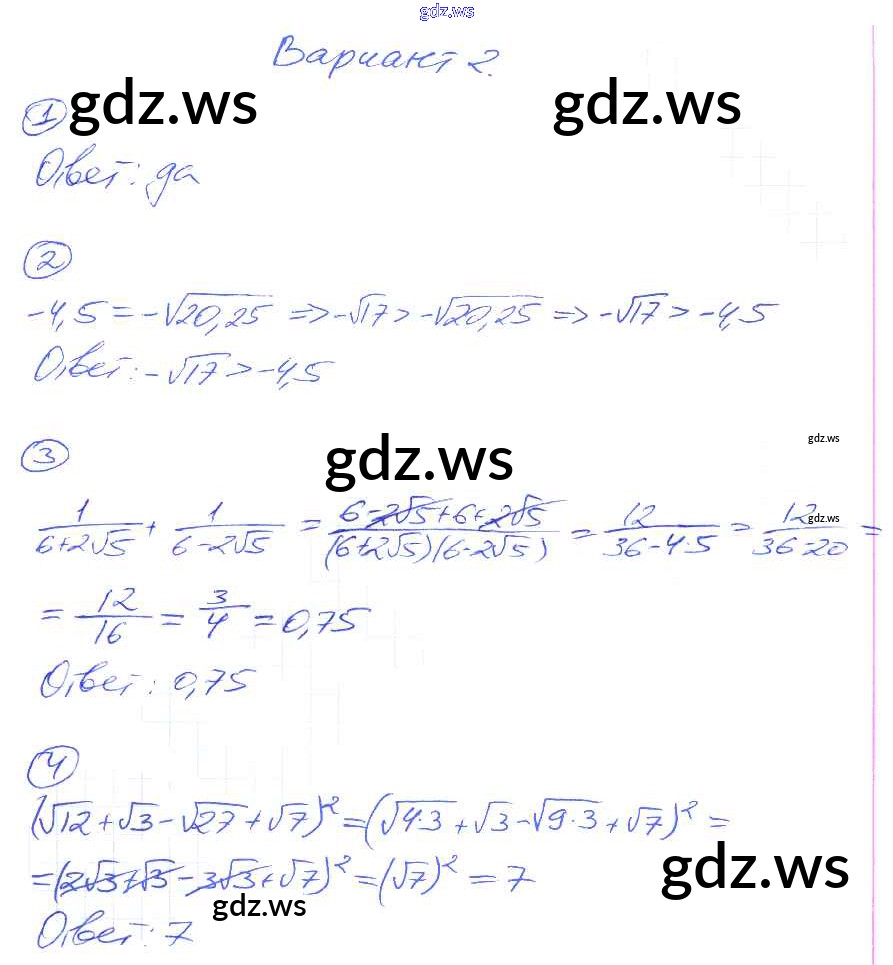 gdz.ws
Вариант 2.
① gdz.ws gdz.ws
Ответ: да
②
-4,5 = -√20,25 => -√17 > -√20,25 => -√17 > -4,5
Ответ: -√17 > -4,5
③ gdz.ws gdz.ws
1/(6+2√5) + 1/(6-2√5) = (6-2√5+6+2√5)/((6+2√5)(6-2√5)) = 12/(36-4·5) = 12/(36-20) =
gdz.ws
= 12/16 = 3/4 = 0,75
Ответ: 0,75
④
(√12+√3-√27+√7)² = (√4·3+√3-√9·3+√7)² =
= (2√3+√3-3√3+√7)² = (√7)² = 7
gdz.ws gdz.ws
Ответ: 7